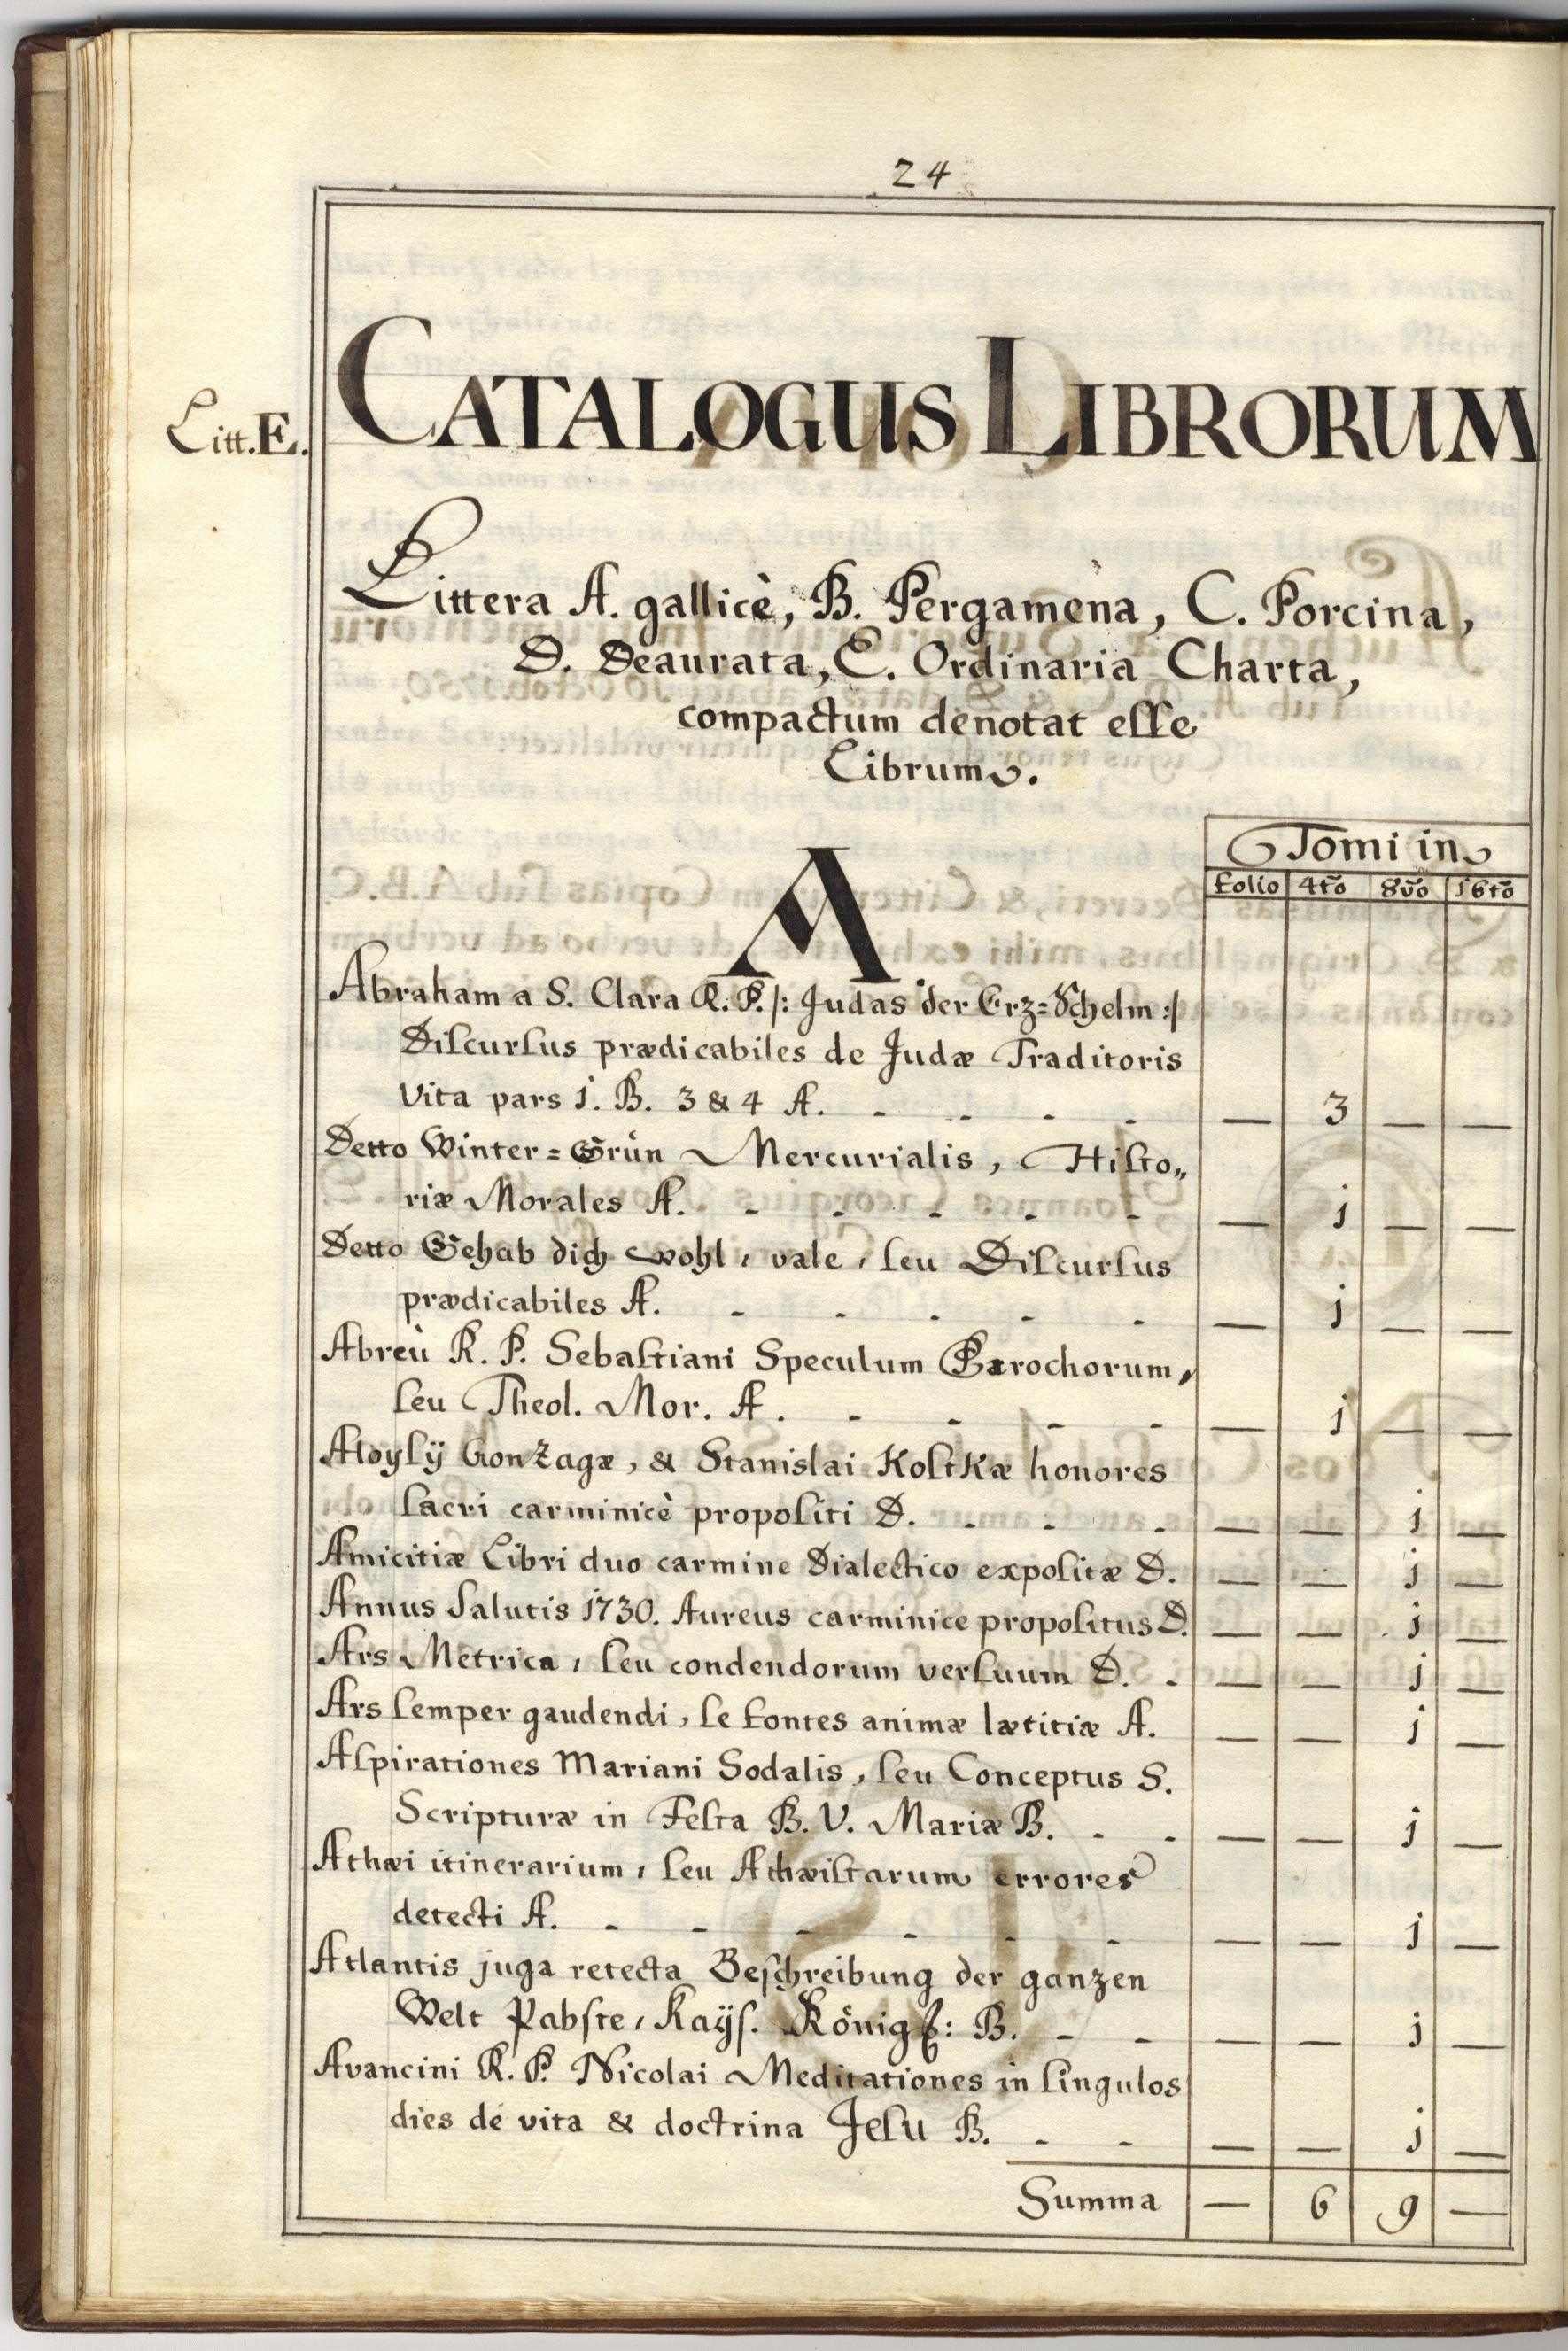 24
Litt. E.
CATALOGUS LIBRORUM
Littera A. gallicè, B. Pergamena, C. Porcina,
D. Deaurata, E. Ordinaria Charta,
compactum denotat esse
Librum.
Tomi in
folio 4to 8vo 16to
A
Abraham a S. Clara R. P. /: Judas der Erz=Schelm :/
Discursus prædicabiles de Judæ Traditoris
Vita pars 1. B. 3 & 4 A. - - - - — 3 — —
Detto Winter=Grün Mercurialis, Histo„
riæ Morales A. - - - - - — 1 — —
Detto Gehab dich wohl, vale, seu Discursus
prædicabiles A. - - - - - — 1 — —
Abreù R. P. Sebastiani Speculum Parochorum,
seu Theol. Mor. A. - - - - — 1 — —
Aloysÿ Gonzagæ, & Stanislai Kostkæ honores
sacri carminicè propositi D. - - - — — 1 —
Amicitiæ Libri duo carmine Dialectico expositæ D. — — 1 —
Annus Salutis 1730. Aureus carminice propositus D. — — 1 —
Ars Metrica, seu condendorum versuum D. - — — 1 —
Ars semper gaudendi, se fontes animæ lætitiæ A. — — 1 —
Aspirationes Mariani Sodalis, seu Conceptus S.
Scripturæ in Festa B. V. Mariæ B. - - — — 1 —
Athæi itinerarium, seu Athæistarum errores
detecti A. - - - - - - — — 1 —
Atlantis juga retecta Beschreibung der ganzen
Welt Pabste, Kaÿs. König &: B. - - — — 1 —
Avancini R. P. Nicolai Meditationes in singulos
dies de vita & doctrina Jesu B. - - — — 1 —
Summa — 6 9 —